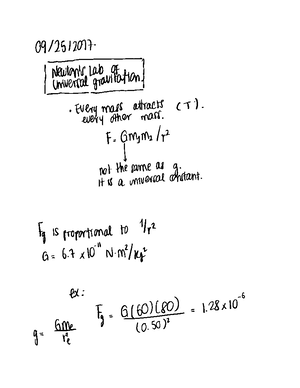 09/25/2017.
Newton's Lab of
universal gravitation.
• Every mass attracts (T).
every other mass.
F = Gm₁m₂/r²
not the same as g.
it is a universal constant.
Fg is proportional to 1/r²
G = 6.7 x 10⁻¹¹ N·m²/kg²
Ex:
Fg = G(60)(80) / (0.50)² = 1.28 x 10⁻⁶
g = Gme / re²